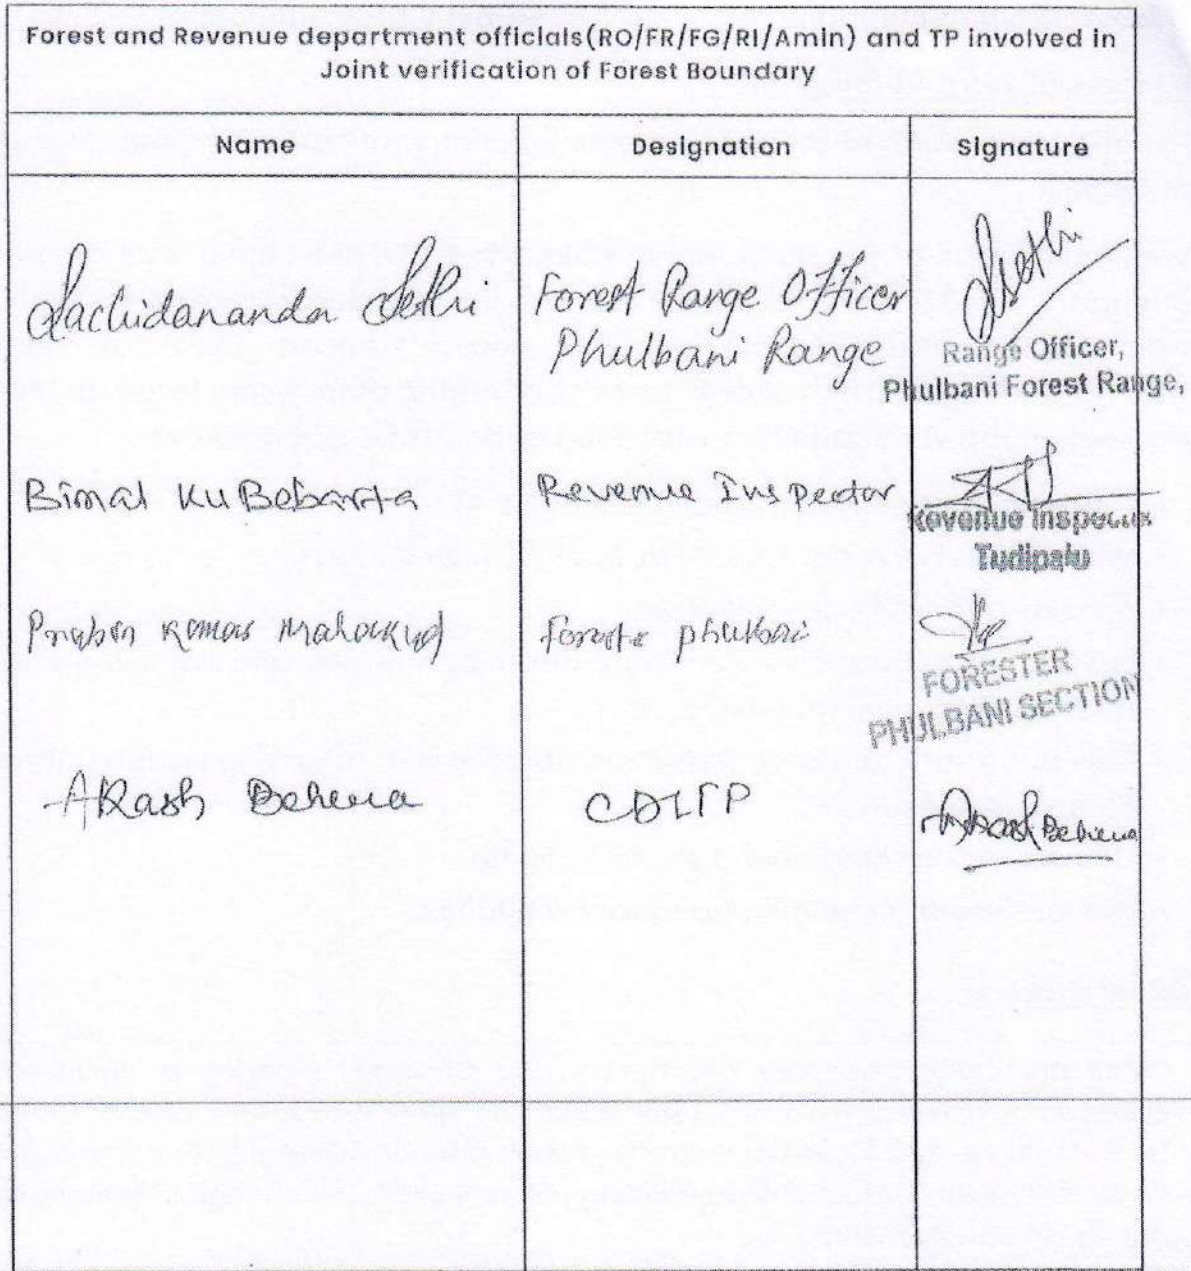 Forest and Revenue department officials(RO/FR/FG/RI/Amin) and TP involved in
Joint verification of Forest Boundary
Name Designation Signature
Sachidananda Sethi Forest Range Officer Sethi
Phulbani Range
Range Officer,
Phulbani Forest Range,
Bimal Ku Bebarta Revenue Inspector
Revenue Inspector
Tudipaju
Kumar phulbani
FORESTER
PHULBANI SECTION
Akash Behera Akash Behera